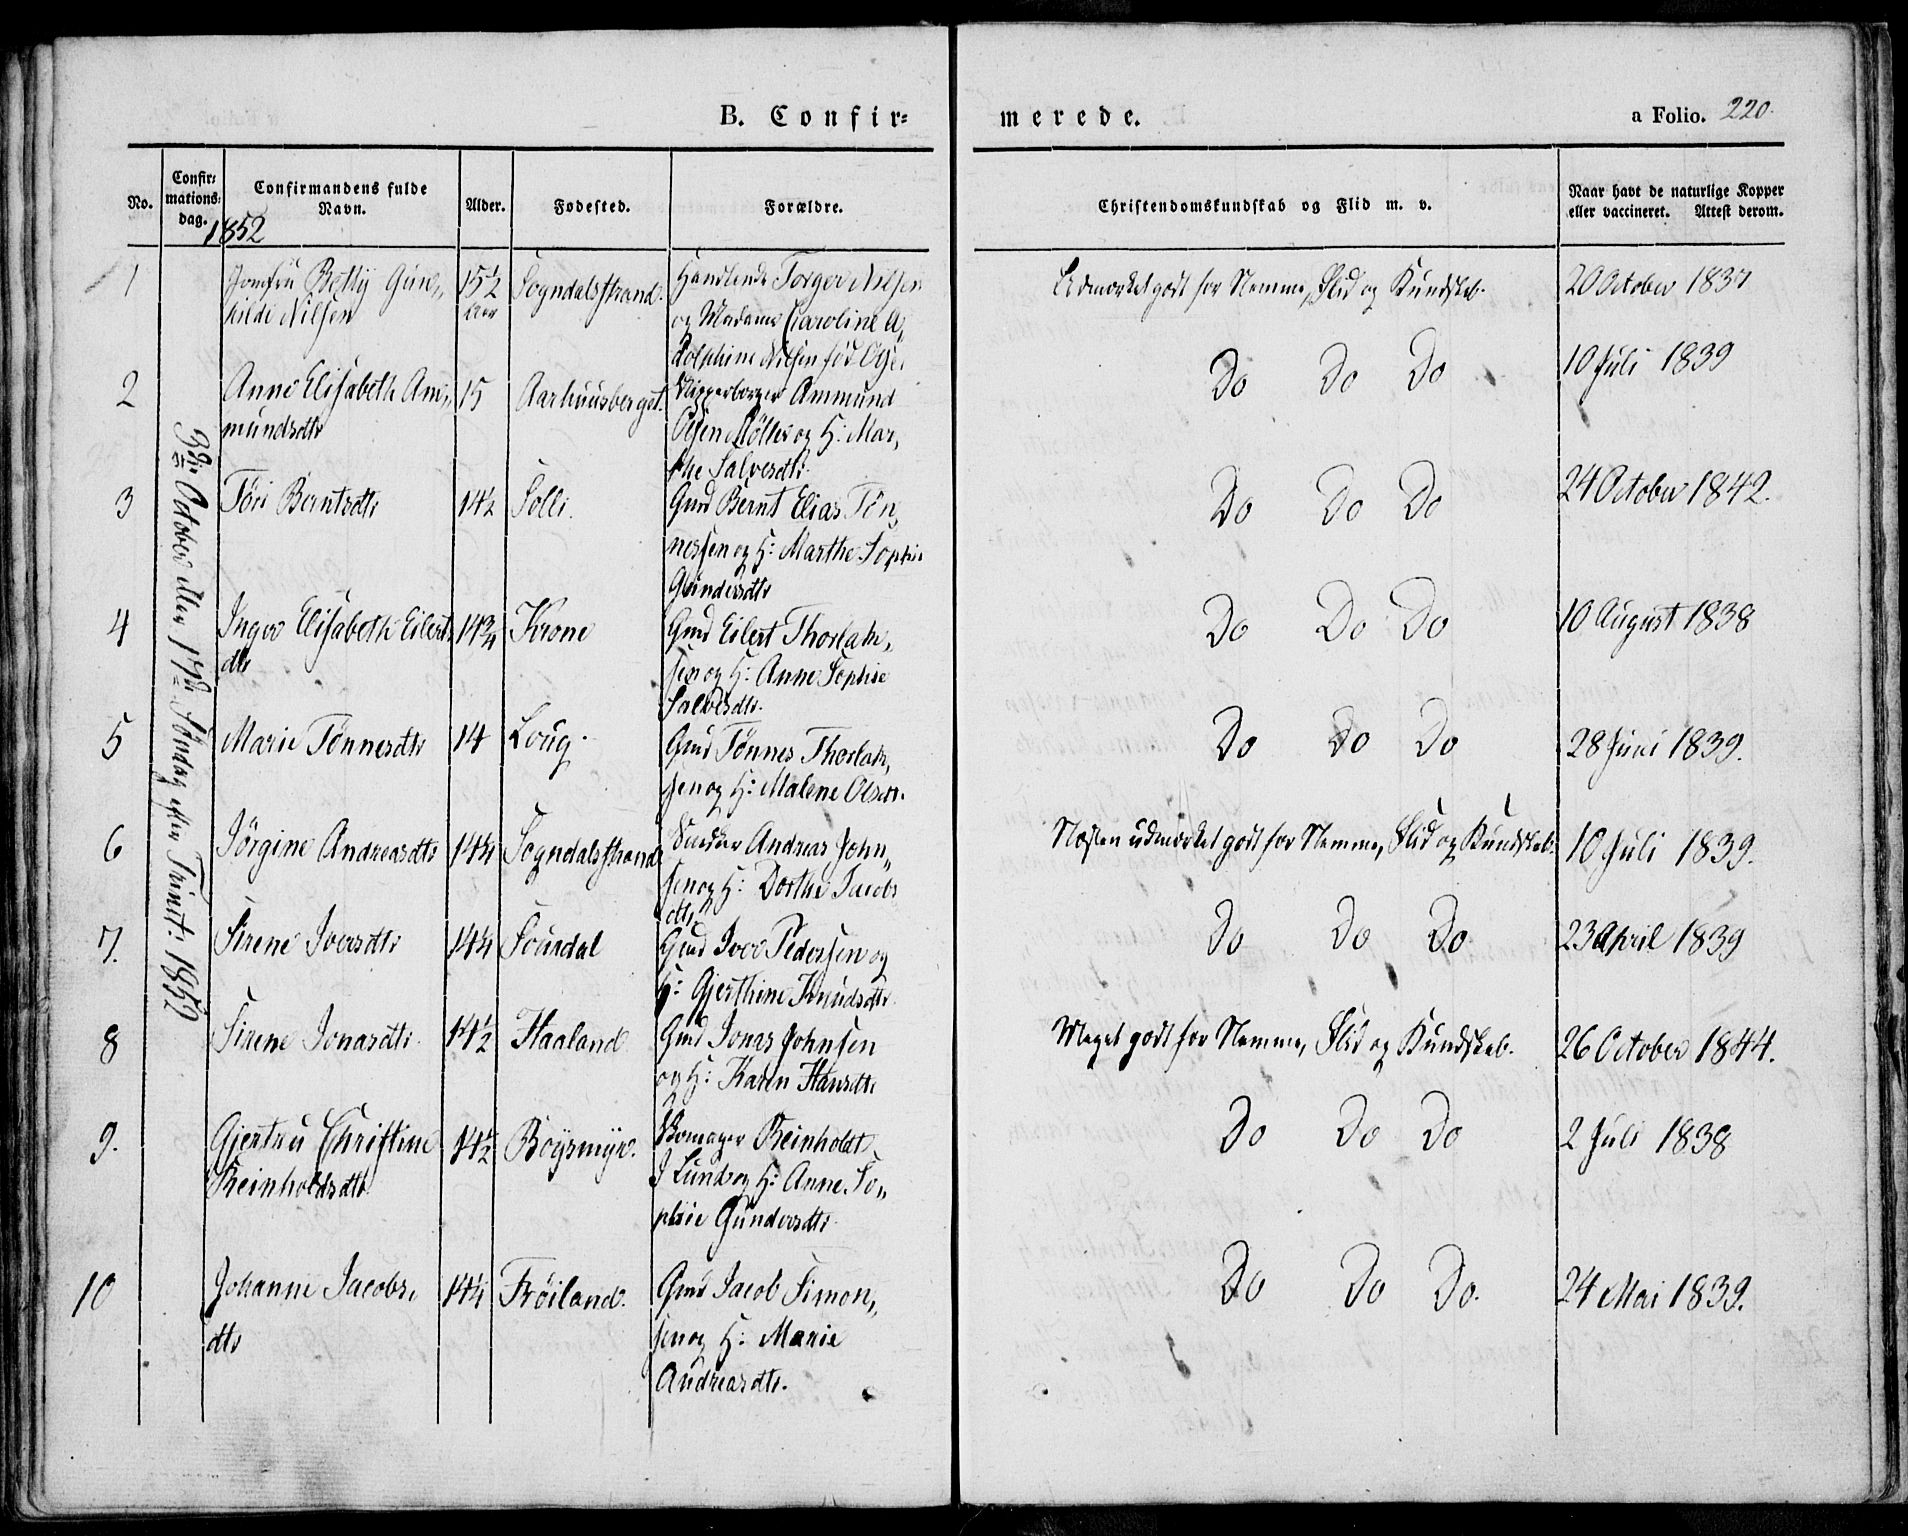 B. Confir=
merede.
a Folio. 220.
No.
Confir=
mations=
dag.
1852
Confirmandens fulde
Navn.
Alder.
Fødested.
Forældre.
Christendomskundskab og Flid m. v.
Naar havt de naturlige Kopper
eller vaccineret. Attest derom.
3die October eller 17de Søndag efter Trinit: 1852
1 Jomfru Betty Gun„ 15½ Sogndalsstrand. Handlende Torger Nilsen Udmærket godt for Nemme, Flid og Kundskab. 20 October 1837
hilde Nilsen Aar og Madame Caroline A„
dolphine Nilsen fød
2 Anne Elisabeth Am„ 15 Aarhuusberget. Skipperborger Ammund Do Do Do 10 Juli 1839
mundsdtr Olsen Møller og H: Mar„
the Salvesdtr.
3 Tøri Berntsdtr 14½ Solli. Gmd Bernt Elias Tøn„ Do Do Do 24 October 1842.
nessen og H: Marthe Sophie
Gundersdtr
4 Inger Elisabeth Eilerts 14¾ Krone Gmd Eilert Thorlak„ Do Do Do 10 August 1838
dtr sen og H: Anne Sophie
Salvesdtr.
5 Marie Tønnesdtr 14 Loug. Gmd Tønnes Thorlak„ Do Do Do 28 Juni 1839.
sen og H: Malene Olsen.
6 Jørgine Andreasdtr 14¼ Sogndalsstrand Snedker Andreas John„ Næsten udmærket godt for Nemme, Flid og Kundskab. 10 Juli 1839.
sen og H: Dorthe Jacobs
dtr
7. Sirene Iversdtr 14¼ Soundal Gmd Iver Pedersen og Do Do Do 23 April 1839
H: Gjerthine Knudsdtr.
8 Sirene Jonasdtr. 14½ Haaland Gmd Jonas Johnsen Meget godt for Nemme, Flid og Kundskab. 26 October 1844.
og H: Karen Hansdtr
9. Gjertru Christine 14½ Bøgsmyr. Reinholdt Do Do Do 2 Juli 1838
Reinholdsdtr J Lund og H: Anne So„
phie Gundersdtr.
10 Johanne Jacobs„ 14¼ Frøiland. Gmd Jacob Simon„ Do Do Do. 24 Mai 1839.
dtr sen og H: Marie
Andreasdtr.